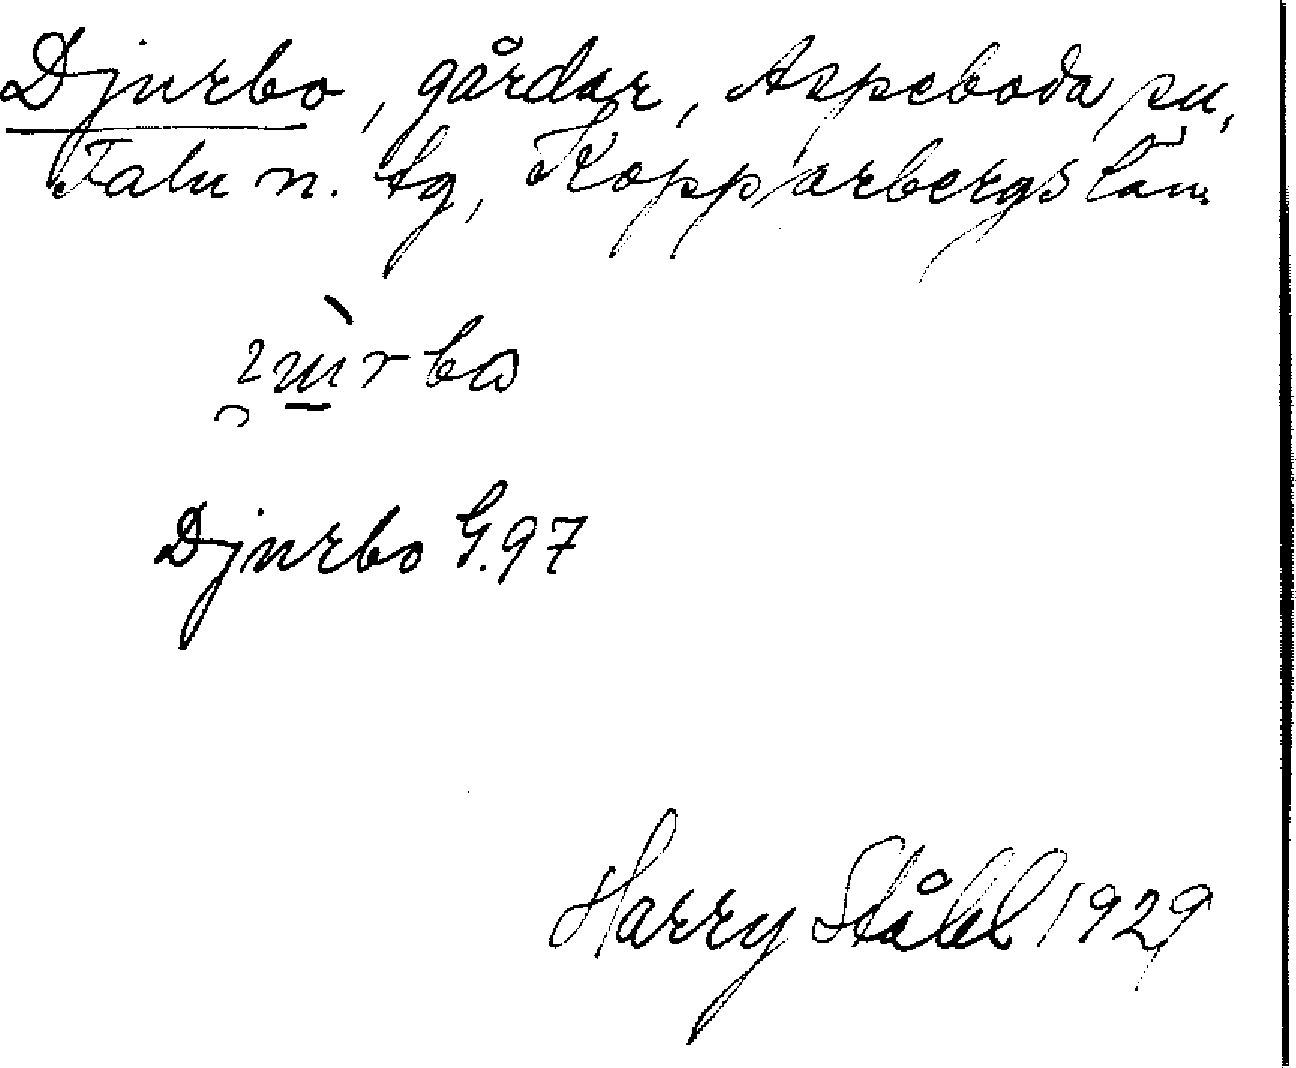 Djurbo, gårdar, Aspeboda sn,
Falu n. tg, Kopparbergs län.
Djurbo G.97
Harry Ståhl 1929